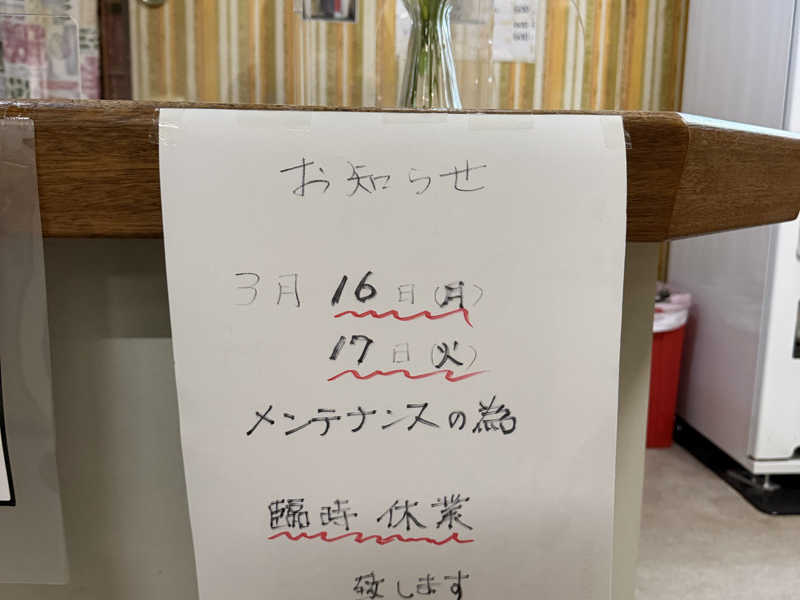 お知らせ
3月 16日(月)
17日(火)
メンテナンスの為
臨時 休業
致します